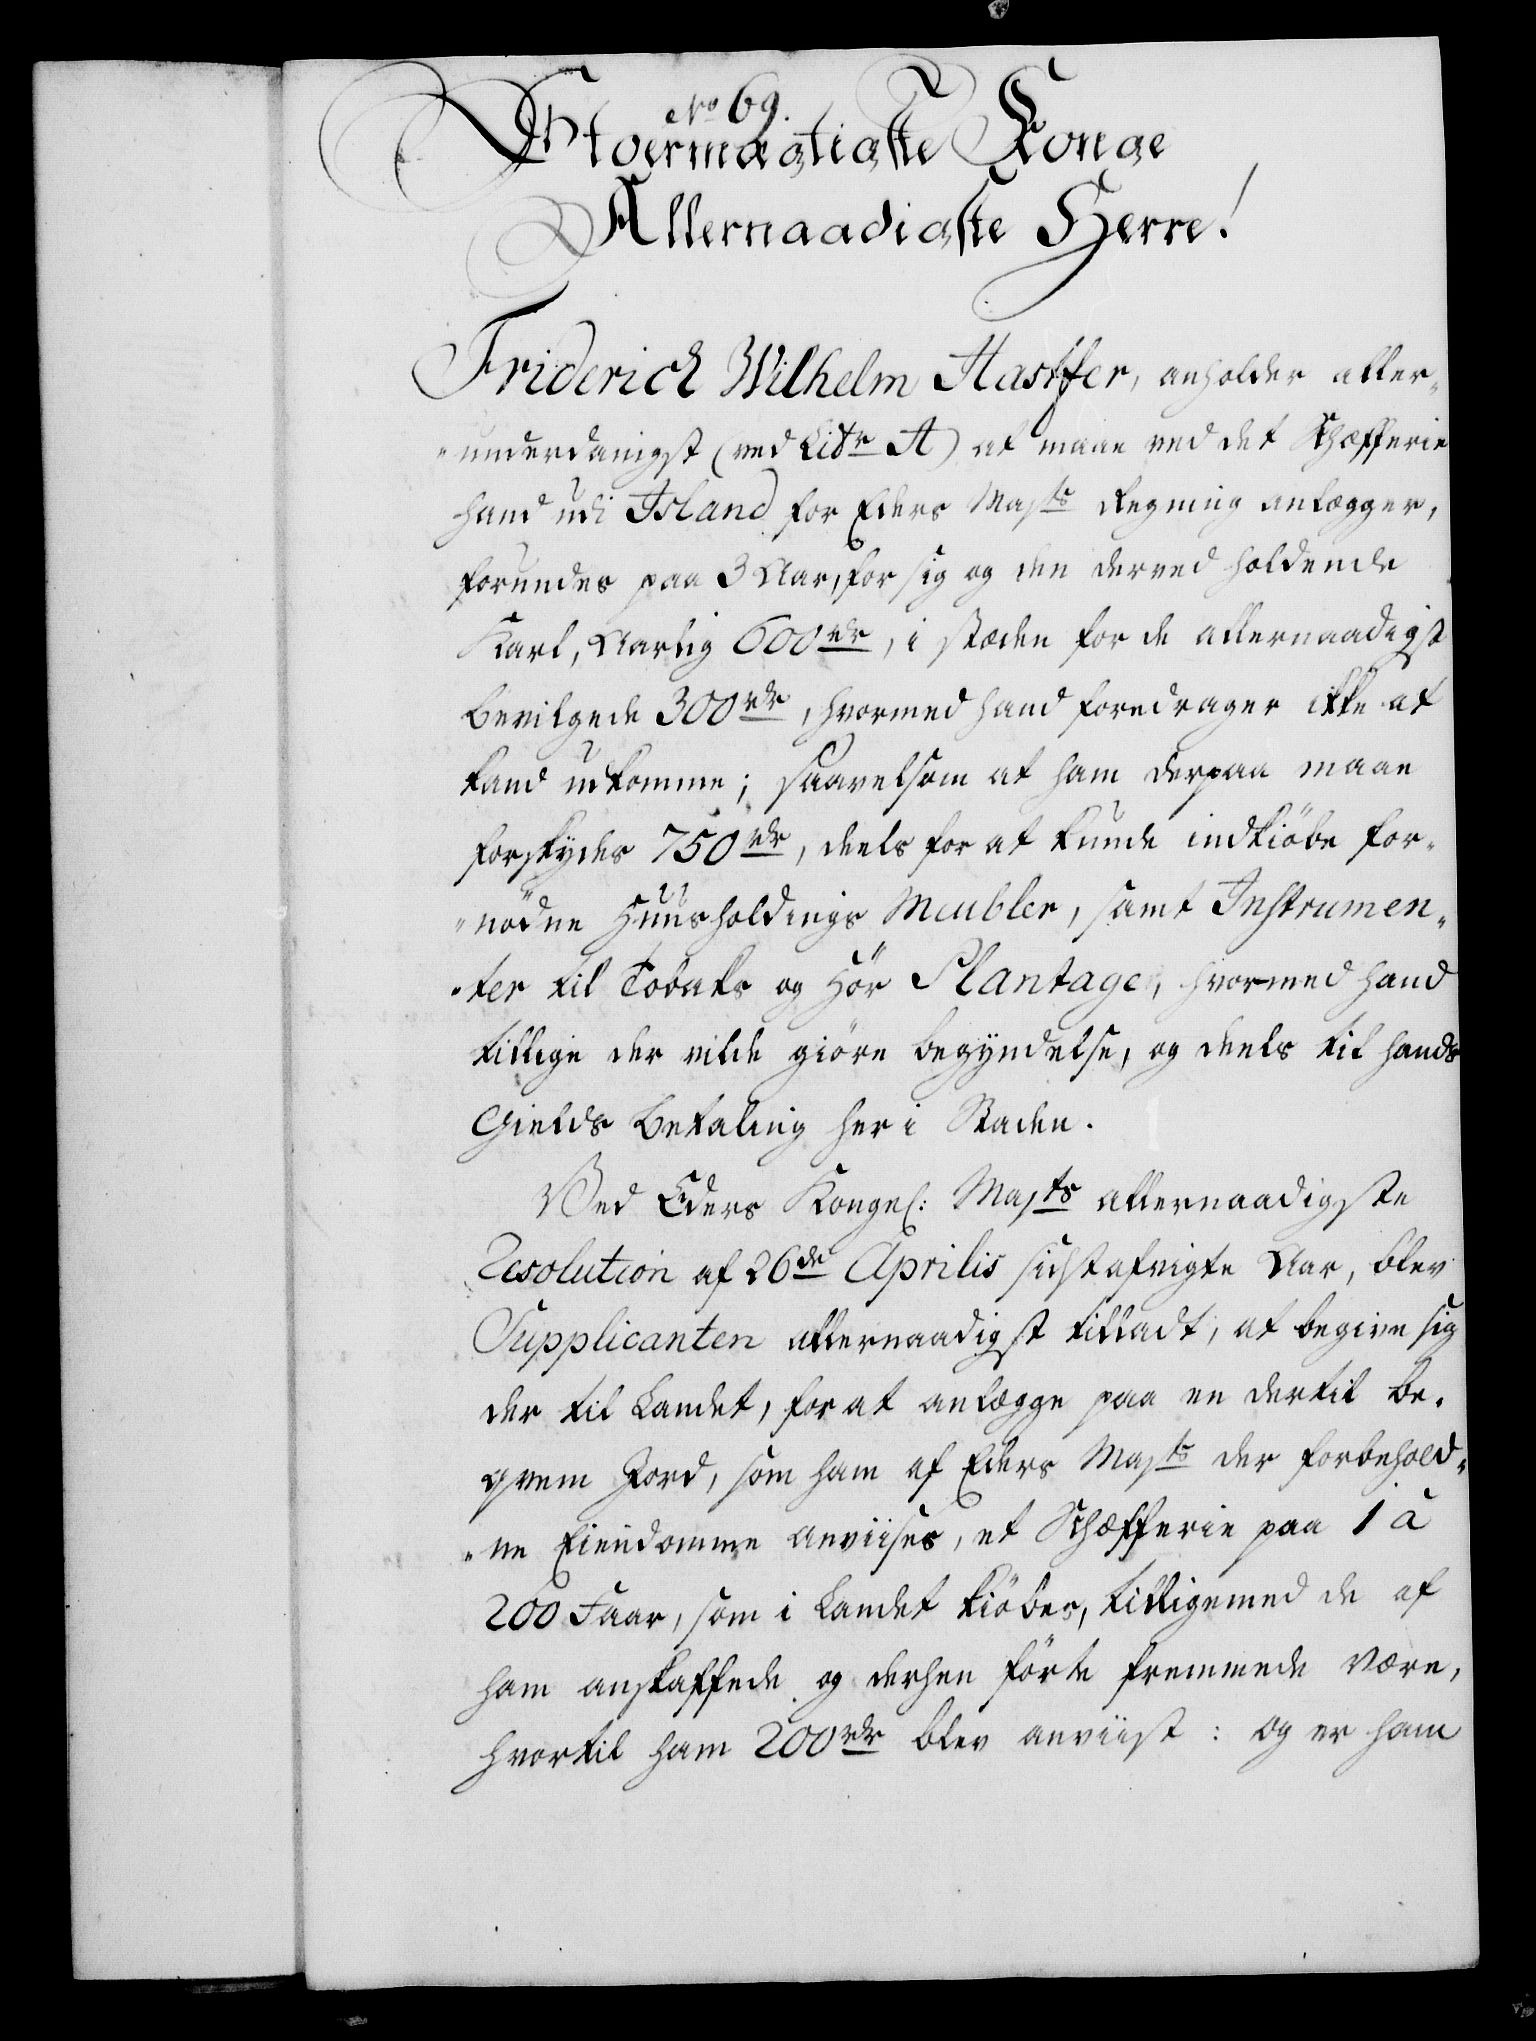 No 69.
Stormægtigste Konge
Allernaadigste Herre!
Friderich Wilhelm Hastfer, anholder aller„
„underdanigst (ved Litr A) at maae ved det Schæfferie
hand udi Island for Eders Majts Regning anlægger,
forundes paa 3 Aar, for sig og den derved holdende
Karl, Aarlig 600 rdr, i stæden for de allernaadigst
bevilgede 300 rdr, hvormed hand foredrager ikke at
kand udkomme; saavelsom at ham derpaa maae
forskydes 750 rdr, deels for at kunde indkiöbe for„
„nödne Huusholdings Meubler, samt Instrumen„
„ter til Tobaks og Hör Plantage, hvormed hand
tillige der vilde giöre begyndelse, og deels til hands
Gields Betaling her i Staden.
Ved Eders Kongel: Majts allernaadigste
Resolution af 26de Aprilis sidstafvigte Aar, blev
Supplicanten allernaadigst tilladt, at begive sig
der til Landet, for at anlægge paa en dertil be„
qvem Jord, som ham af Eders Majts der forbehold„
„ne Eiendomme anviises, et Schæfferie paa 1 à
200 Faar, som i Landet kiöbes, tilligemed de af
ham anskaffede og derhen förte fremmede Være,
hvortil ham 200 rdr blev anviist: og er ham